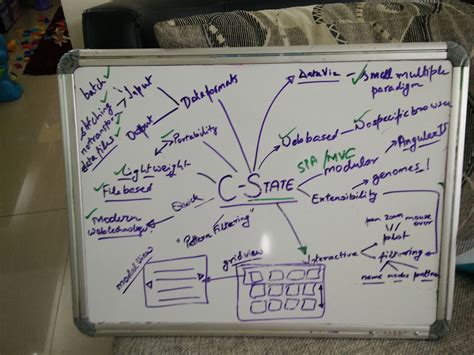 batch
Input
Dataformats
stitching
notransform
data files
Output
Portability
Light weight
File based
Quick
modern
web technology
"Pattern Filtering"
C-STATE
DataViz
Small multiple
paradigm
Web based
No specific browser
SPA/MVC
modular
AngularJS
Extensibility
genomes
Interactive
pan zoom mouse over
plot
filtering
name nodes pattern
modal view
gridview